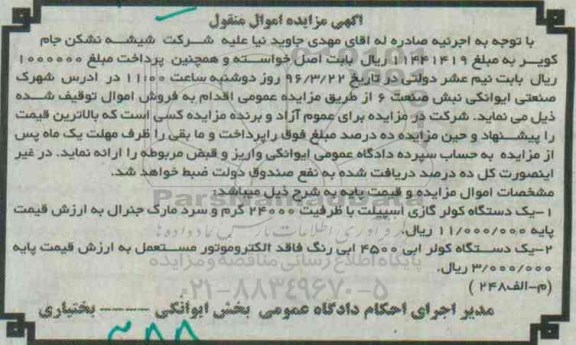 آگهی مزایده اموال منقول
با توجه به اجرئیه صادره له اقای مهدی جاوید نیا علیه شرکت شیشه نشکن جام
کویر به مبلغ ۱۱۴۴۱۴۱۹ ریال بابت اصل خواسته و همچنین پرداخت مبلغ ۱۰۰۰۰۰۰
ریال بابت نیم عشر دولتی در تاریخ ۹۶/۳/۲۲ روز دوشنبه ساعت ۱۱:۰۰ در ادرس شهرک
صنعتی ایوانکی نبش صنعت ۶ از طریق مزایده عمومی اقدام به فروش اموال توقیف شده
ذیل می نماید. شرکت در مزایده برای عموم آزاد و برنده مزایده کسی است که بالاترین قیمت
را پیشنهاد و حین مزایده ده درصد مبلغ فوق راپرداخت و ما بقی را ظرف مهلت یک ماه پس
از مزایده به حساب سپرده دادگاه عمومی ایوانکی واریز و قبض مربوطه را ارائه نماید. در غیر
اینصورت کل ده درصد دریافت شده به نفع صندوق دولت ضبط خواهد شد.
مشخصات اموال مزایده و قیمت پایه به شرح ذیل میباشد:
۱-یک دستگاه کولر گازی اسپیلت با ظرفیت ۲۴۰۰۰ گرم و سرد مارک جنرال به ارزش قیمت
پایه ۱۱/۰۰۰/۰۰۰ ریال.
۲-یک دستگاه کولر ابی ۴۵۰۰ ابی رنگ فاقد الکتروموتور مستعمل به ارزش قیمت پایه
۳/۰۰۰/۰۰۰ ریال.
پایگاه اطلاع رسانی مناقصه و مزایده
(م-الف۲۴۸)
۰۲۱-۸۸۳۴۹۶۷۰-۵
مدیر اجرای احکام دادگاه عمومی بخش ایوانکی ---- بختیاری